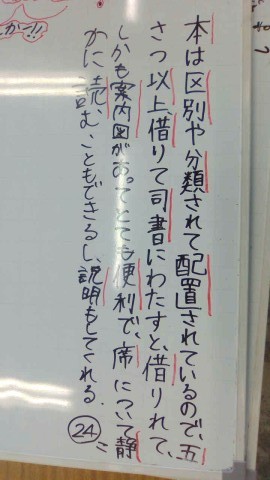 本は区別や分類されて配置されているので、五
さつ以上、借りて司書にわたすと、借りれて、
しかも案内図があってとても便利で、席について静
かに読む、こともできるし、説明もしてくれる.
㉔